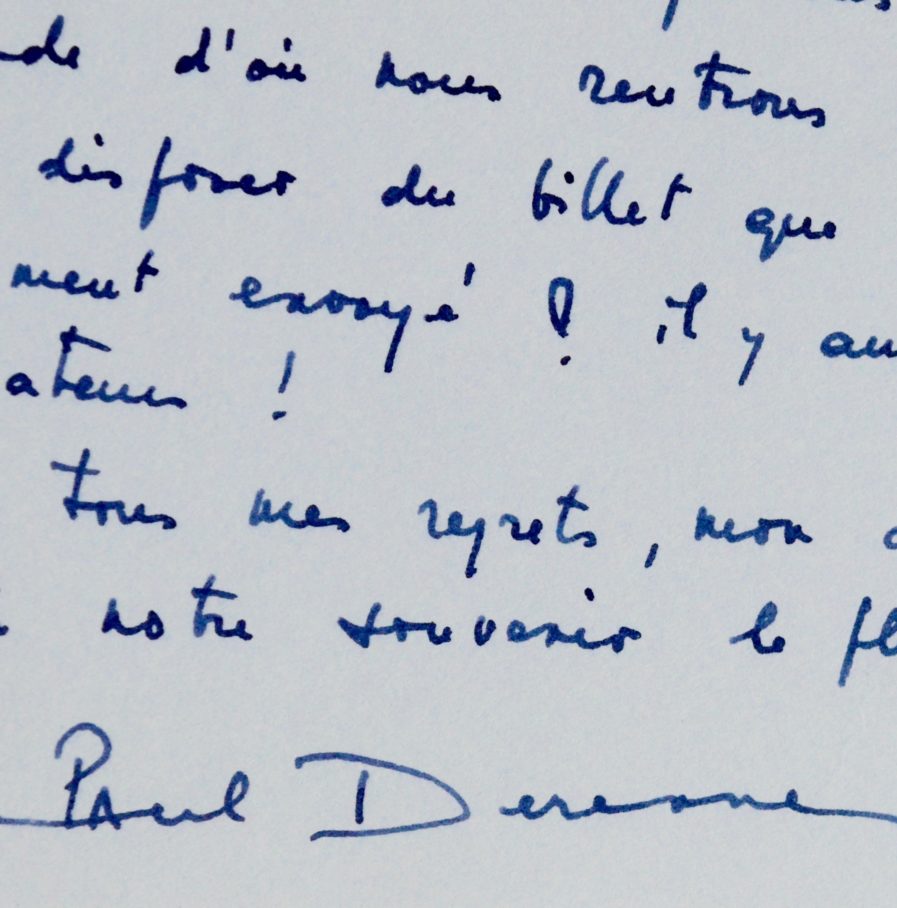 de d'où nous rentrons
disposer du billet que
ment envoyé ? il y au
ateurs !
tous mes regrets, mon
notre souvenir le pl
Paul Derenne